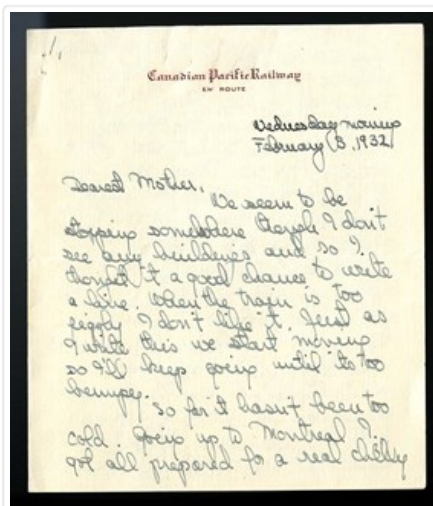 Canadian Pacific Railway
EN ROUTE
Wednesday morning
February 3, 1932
Dearest Mother,
We seem to be
stopping somewhere though I don't
see any buildings and so I
thought it a good chance to write
a line. When the train is too
jiggly I don't like it. Just as
I write this we start moving
so I'll keep going until its too
bumpy.
So far it hasn't been too
cold. Going up to Montreal I
got all prepared for a real chilly